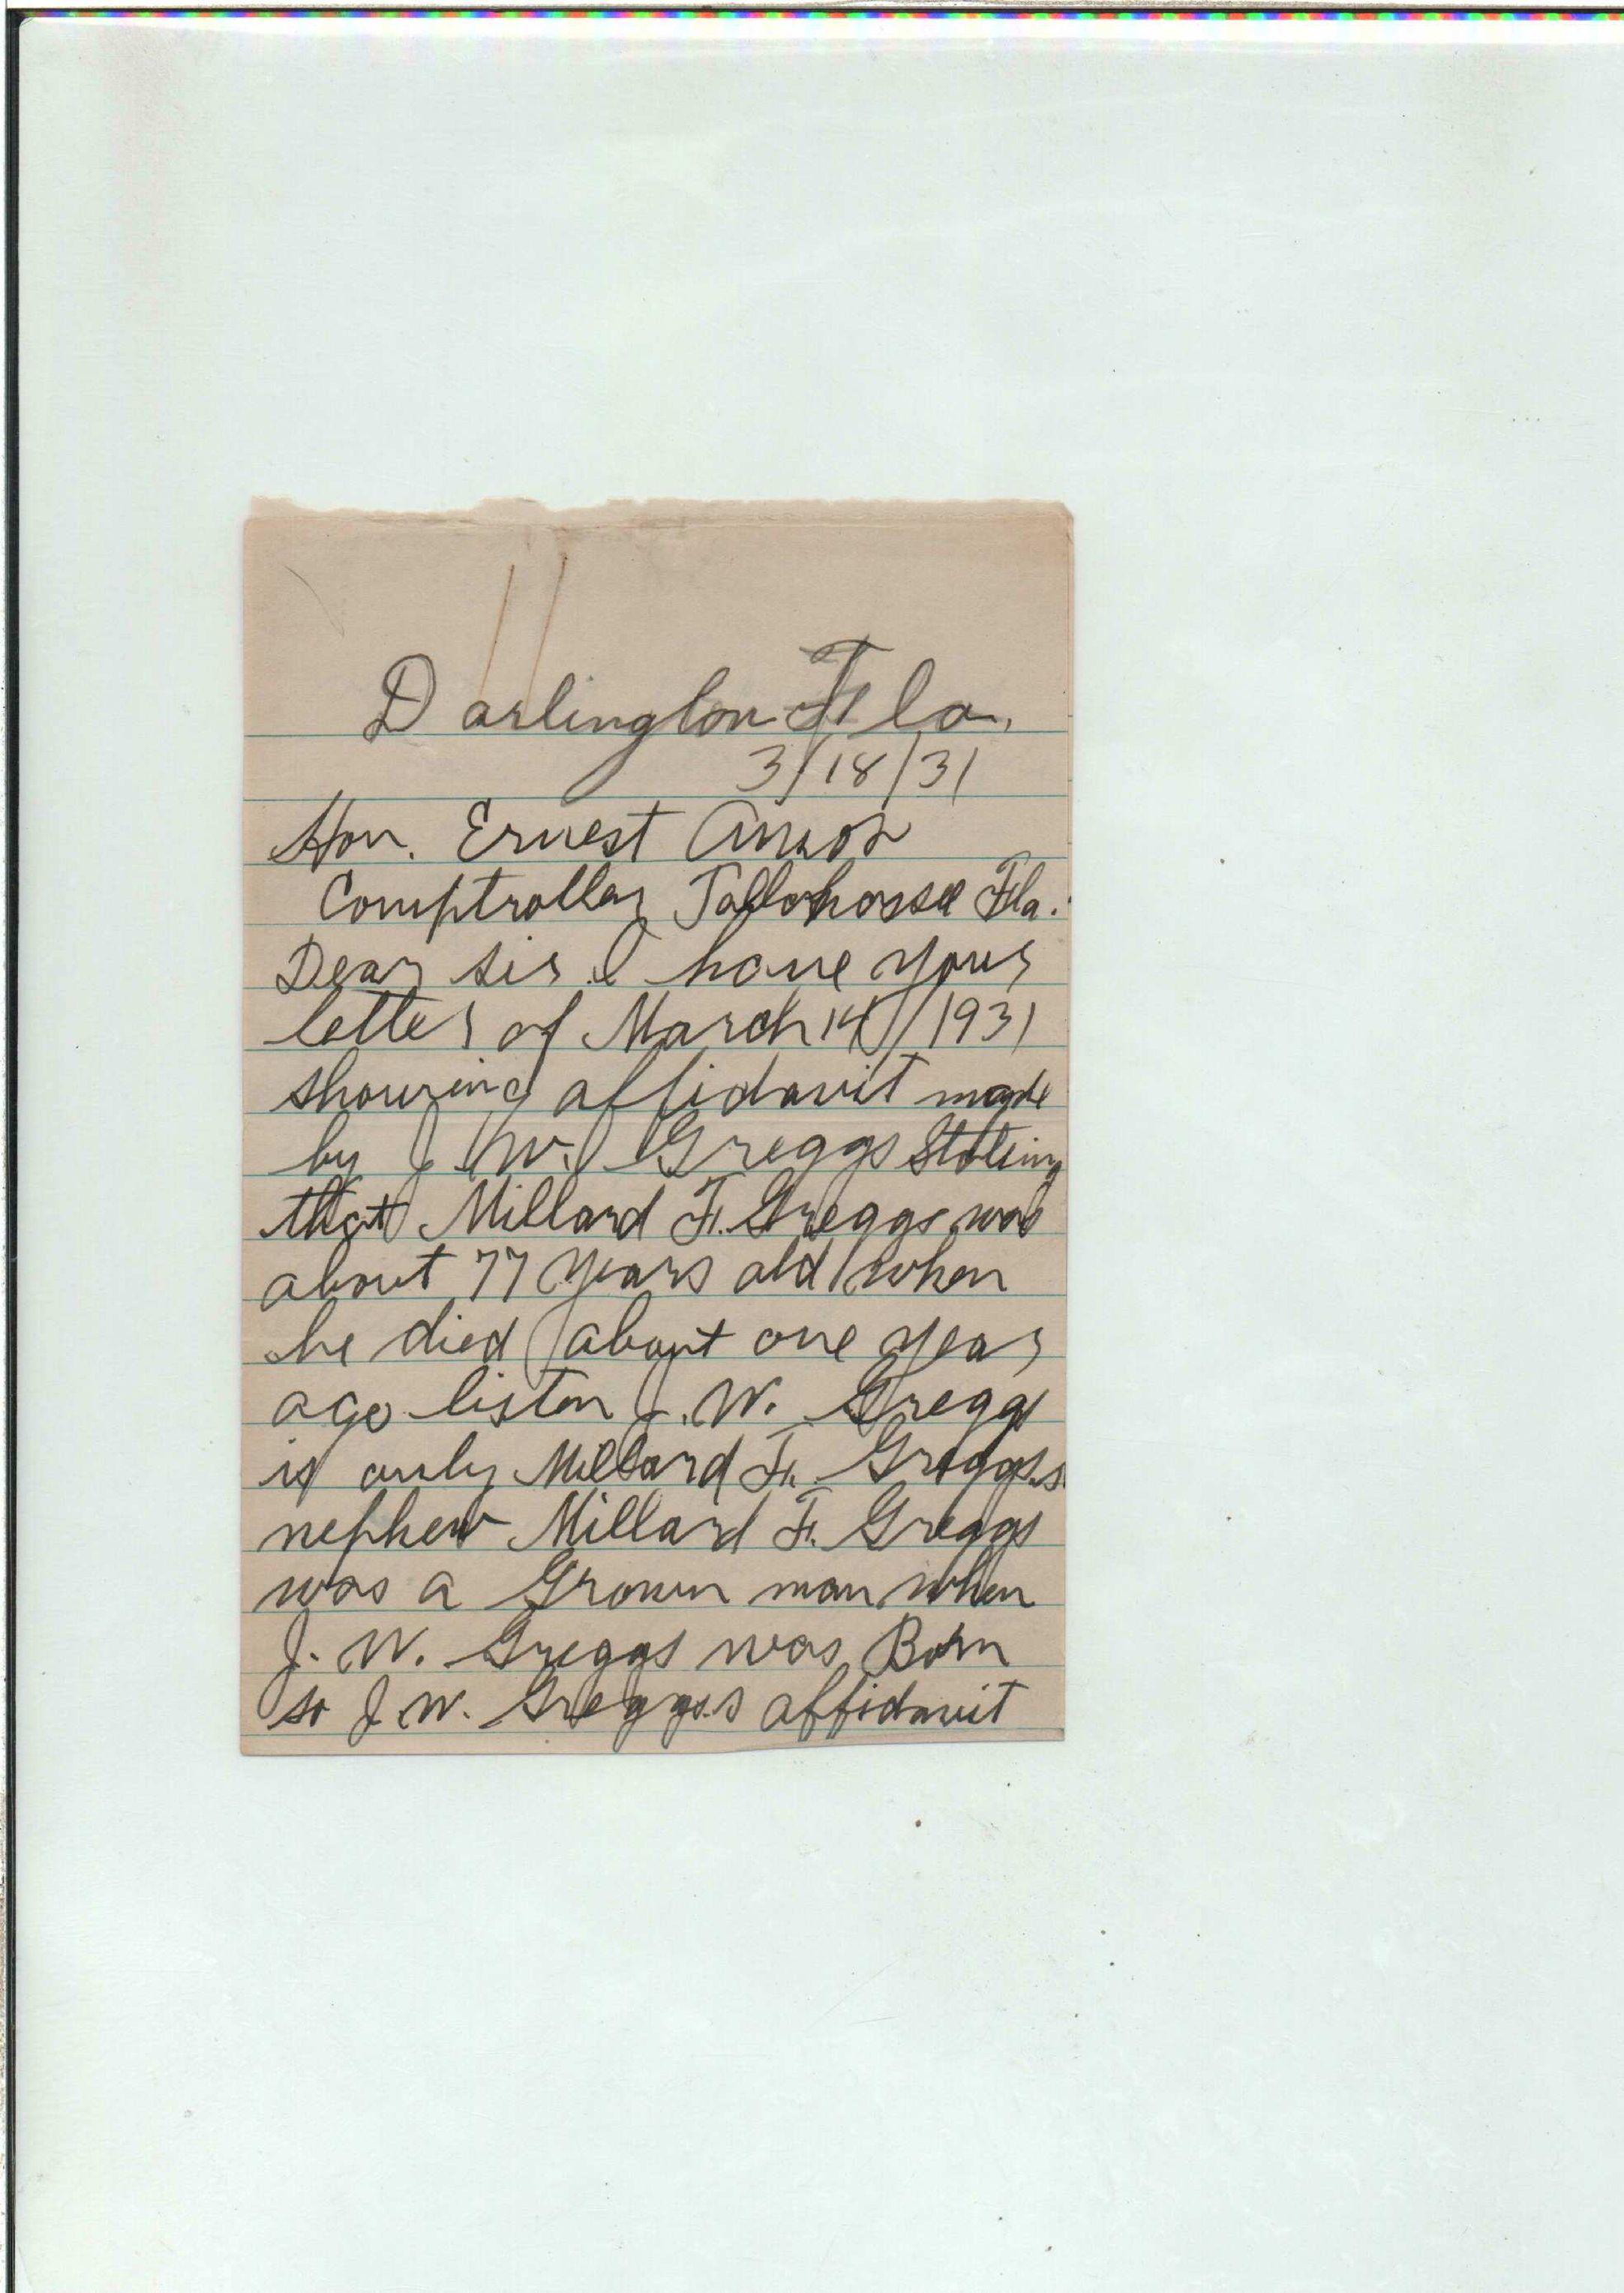 Darlington Fla.
3/18/31
Hon. Ernest Amos
Comptroller Tallahassee Fla.
Dear sir I have your
letter of March 14/1931
showing affidavit made
by J. W. Greggs Stating
that Millard F. Greggs was
about 77 years old when
he died about one year
ago liston J. W. Greggs
is only Millard F. Greggs.s
nephew Millard F. Greggs
was a Grown man when
J. W. Greggs was Born
so J. W. Greggs.s affidavit